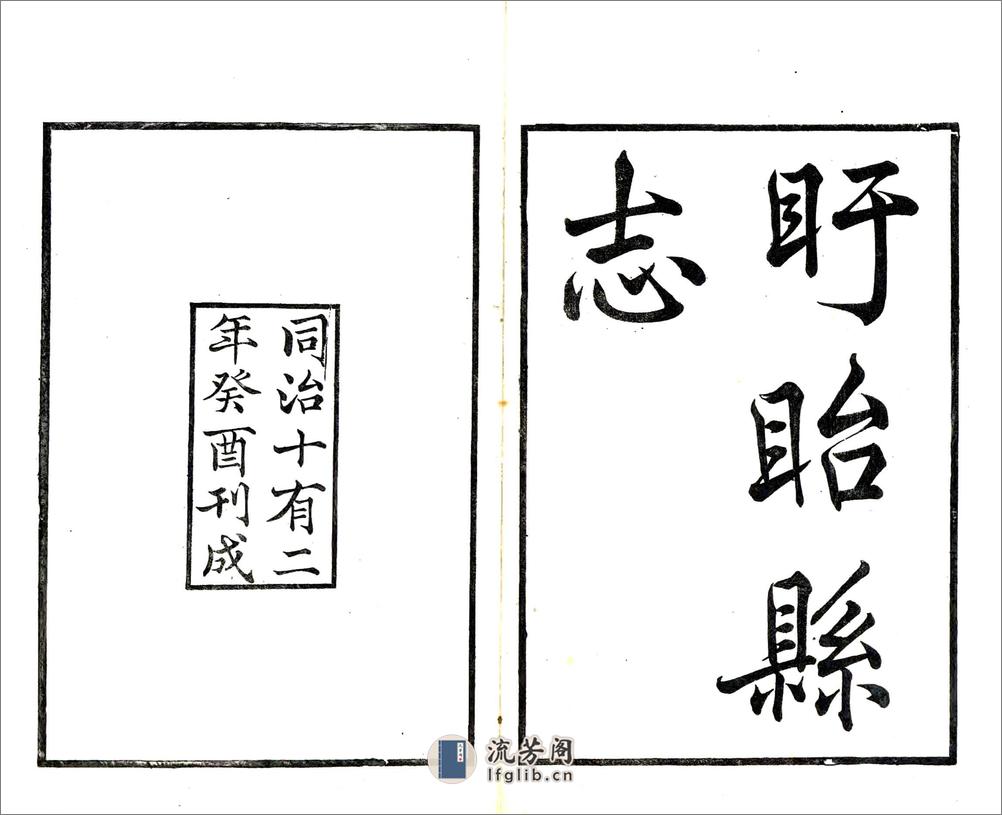 盱眙縣
志
同治十有二
年癸酉刊成
流芳阁
lfglib.cn